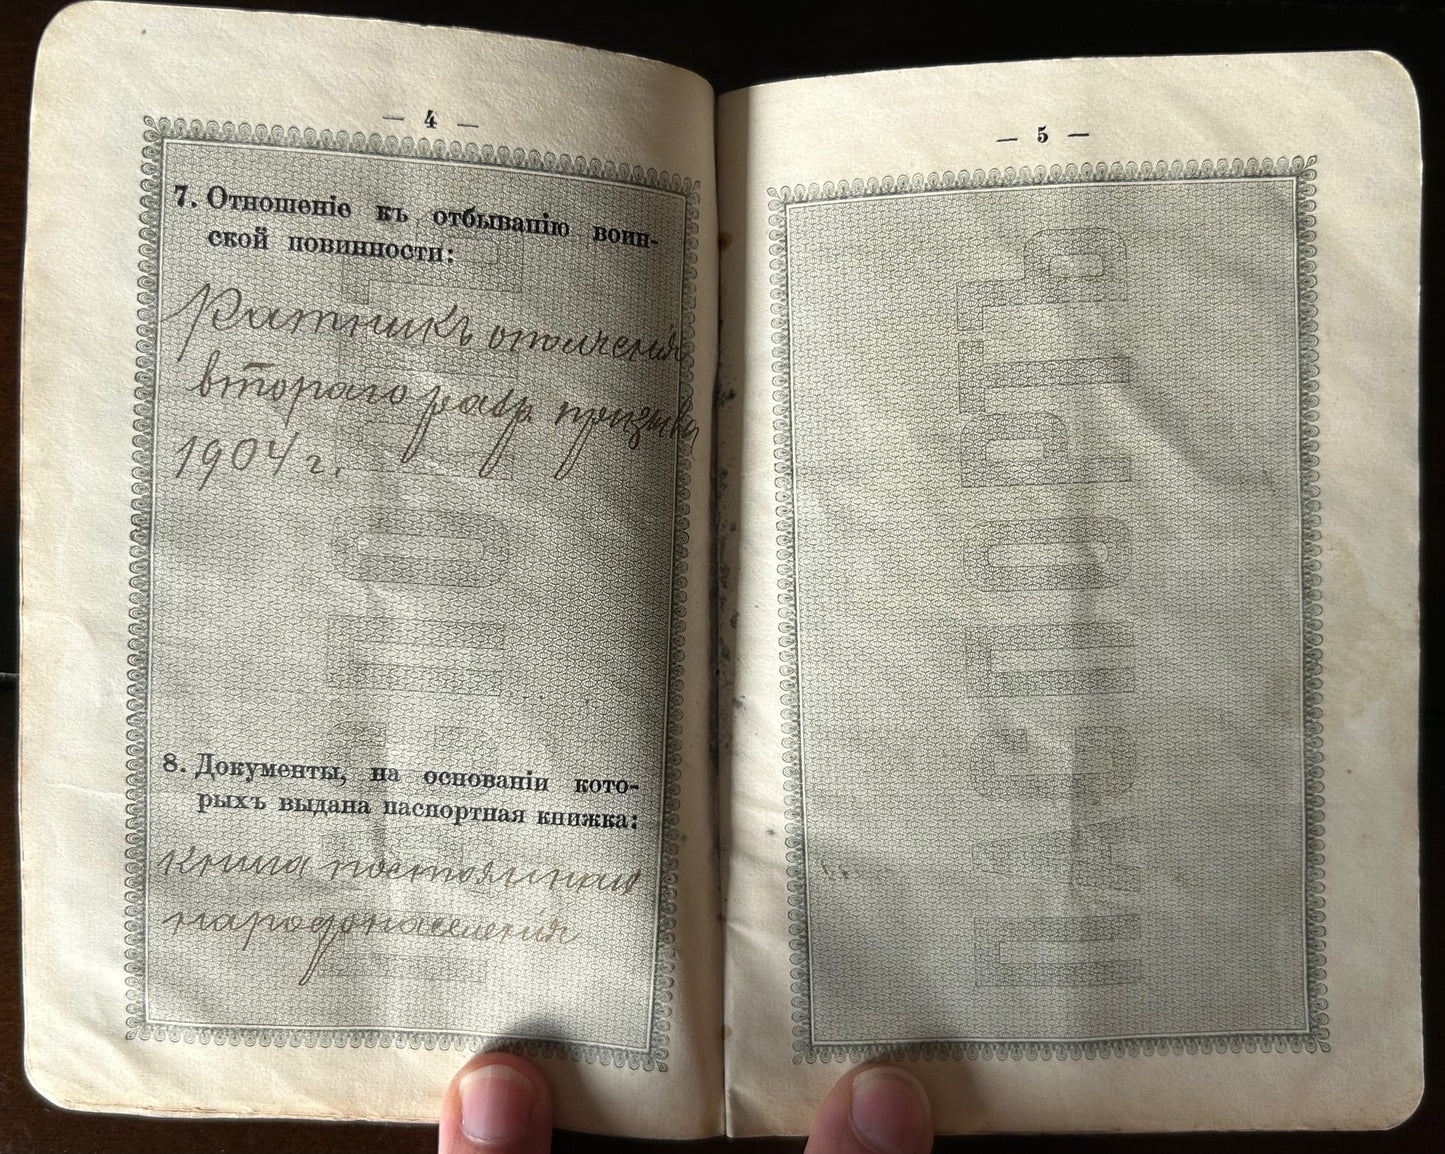 — 4 —
7. Отношеніе къ отбыванію воин-
ской повинности:
Ратникъ ополченія
второго разр. призыва
1904 г.
8. Документы, на основаніи кото-
рыхъ выдана паспортная книжка:
Книга постояннаго
народонаселенія
— 5 —
ПАСПОРТЪ